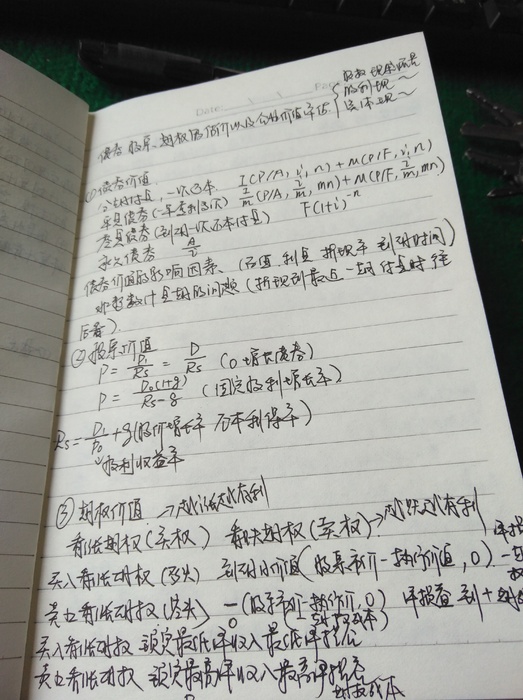 Date:
债券、股票、期权的估价以及企业价值评估
股权现金流量
股利现~
实体现~
①债券价值
分期付息,一次还本 I(P/A, i, n) + M(P/F, i, n)
平息债券(一年季利多次) I/m (P/A, i/m, mn) + M(P/F, i/m, mn)
零息债券(到期一次还本付息) F(1+i)^-n
永久债券 A/i
债券价值的影响因素、(面值 利息 折现率 到期时间)
非整数计息期的问题(折现到最近一期付息时 往
后看)
②股票价值
P = D1/Rs = D/Rs (0增长债券)
P = D0(1+g)/Rs-g (固定股利增长率)
Rs = D1/P0 + g(股价增长率 资本利得率)
股利收益率
③期权价值 →越涨越有利
看涨期权(买权) 看跌期权(卖权)→越跌越有利
买入看涨期权(多头) 到期日价值(股票市价-执行价值,0)
卖出看涨期权(空头) -(股票市价-执行价,0) 净损益 到+期
买入看涨期权 锁定最低净收入最低净损益
卖出看涨期权 锁定最高净收入最高净损益
期权成本